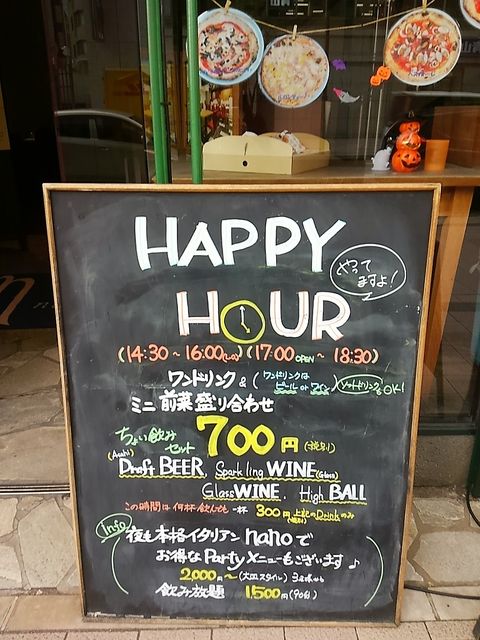 HAPPY
HOUR
やって
ますよ!
(14:30~16:00(L.o)) (17:00 OPEN~18:30)
ワンドリンク & (ワンドリンクは
ビール or ワイン) ソフトドリンクもOK!
ミニ 前菜盛り合わせ
ちょい飲み
セット
700円(税別)
(Asahi)
Draft BEER, Sparkling WINE(Glass)
Glass WINE, High BALL
この時間は何杯飲んでも 一杯 300円(税別) 上記のDrinkのみ
Info
夜も本格イタリアン nanoで
お得なPartyメニューもございます♪
2,000円~(大皿スタイル)
飲み放題 1,500円(90分)